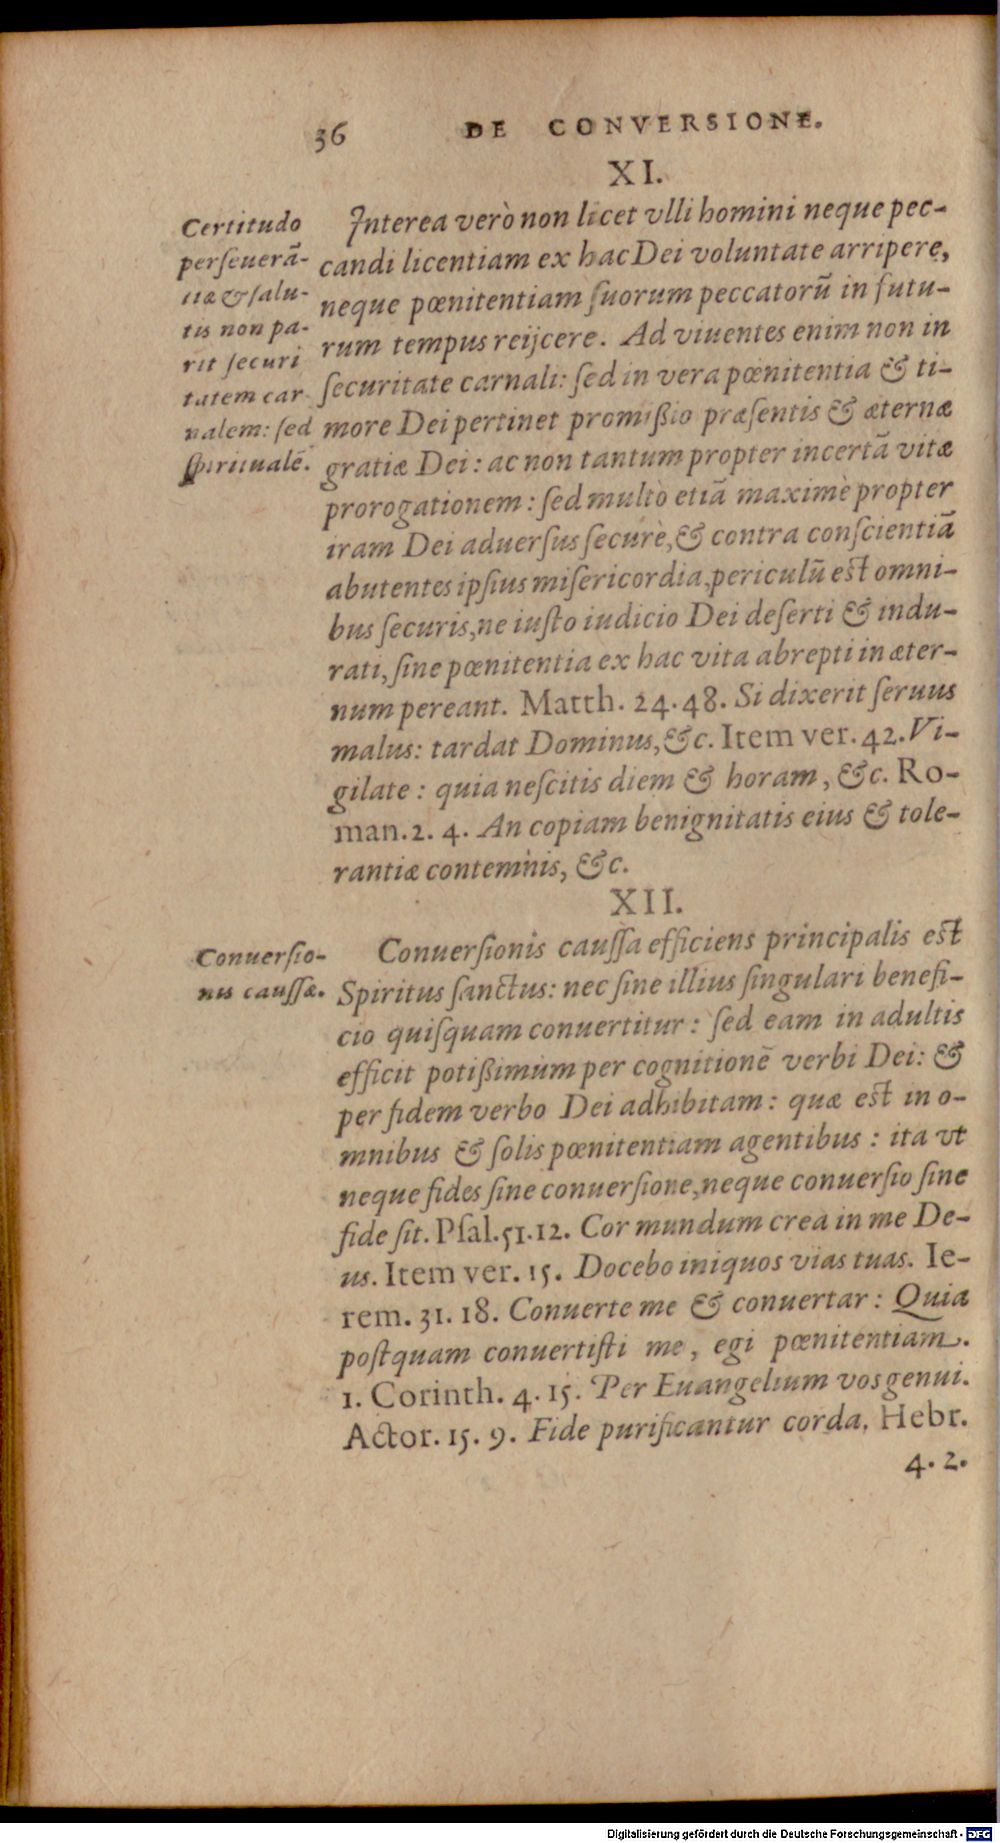 36 DE CONVERSIONE.
XI.
Certitudo
perſeuerã-
tiæ & ſalu-
tis non pa-
rit ſecuri
tatem car
nalem: ſed
ſpiritualẽ.
Interea verò non licet vlli homini neque pec-
candi licentiam ex hac Dei voluntate arripere,
neque pœnitentiam ſuorum peccatorũ in futu-
rum tempus reijcere. Ad viuentes enim non in
ſecuritate carnali: ſed in vera pœnitentia & ti-
more Dei pertinet promißio præſentis & æternæ
gratiæ Dei: ac non tantum propter incertã vitæ
prorogationem: ſed multò etiã maximè propter
iram Dei aduerſus ſecurè, & contra conſcientiã
abutentes ipſius miſericordia, periculũ eſt omni-
bus ſecuris, ne iuſto iudicio Dei deſerti & indu-
rati, ſine pœnitentia ex hac vita abrepti in æter-
num pereant. Matth. 24. 48. Si dixerit ſeruus
malus: tardat Dominus, &c. Item ver. 42. Vi-
gilate: quia neſcitis diem & horam, &c. Ro-
man. 2. 4. An copiam benignitatis eius & tole-
rantiæ contemnis, &c.
XII.
Conuerſio-
nis cauſſæ.
Conuerſionis cauſſa efficiens principalis eſt
Spiritus ſanctus: nec ſine illius ſingulari benefi-
cio quiſquam conuertitur: ſed eam in adultis
efficit potißimùm per cognitionẽ verbi Dei: &
per fidem verbo Dei adhibitam: quæ eſt in o-
mnibus & ſolis pœnitentiam agentibus: ita vt
neque fides ſine conuerſione, neque conuerſio ſine
fide ſit. Pſal. 51. 12. Cor mundum crea in me De-
us. Item ver. 15. Docebo iniquos vias tuas. Ie-
rem. 31. 18. Conuerte me & conuertar: Quia
poſtquam conuertiſti me, egi pœnitentiam.
1. Corinth. 4. 15. Per Euangelium vos genui.
Actor. 15. 9. Fide purificantur corda. Hebr.
4. 2.
Digitalisierung gefördert durch die Deutsche Forschungsgemeinschaft - DFG